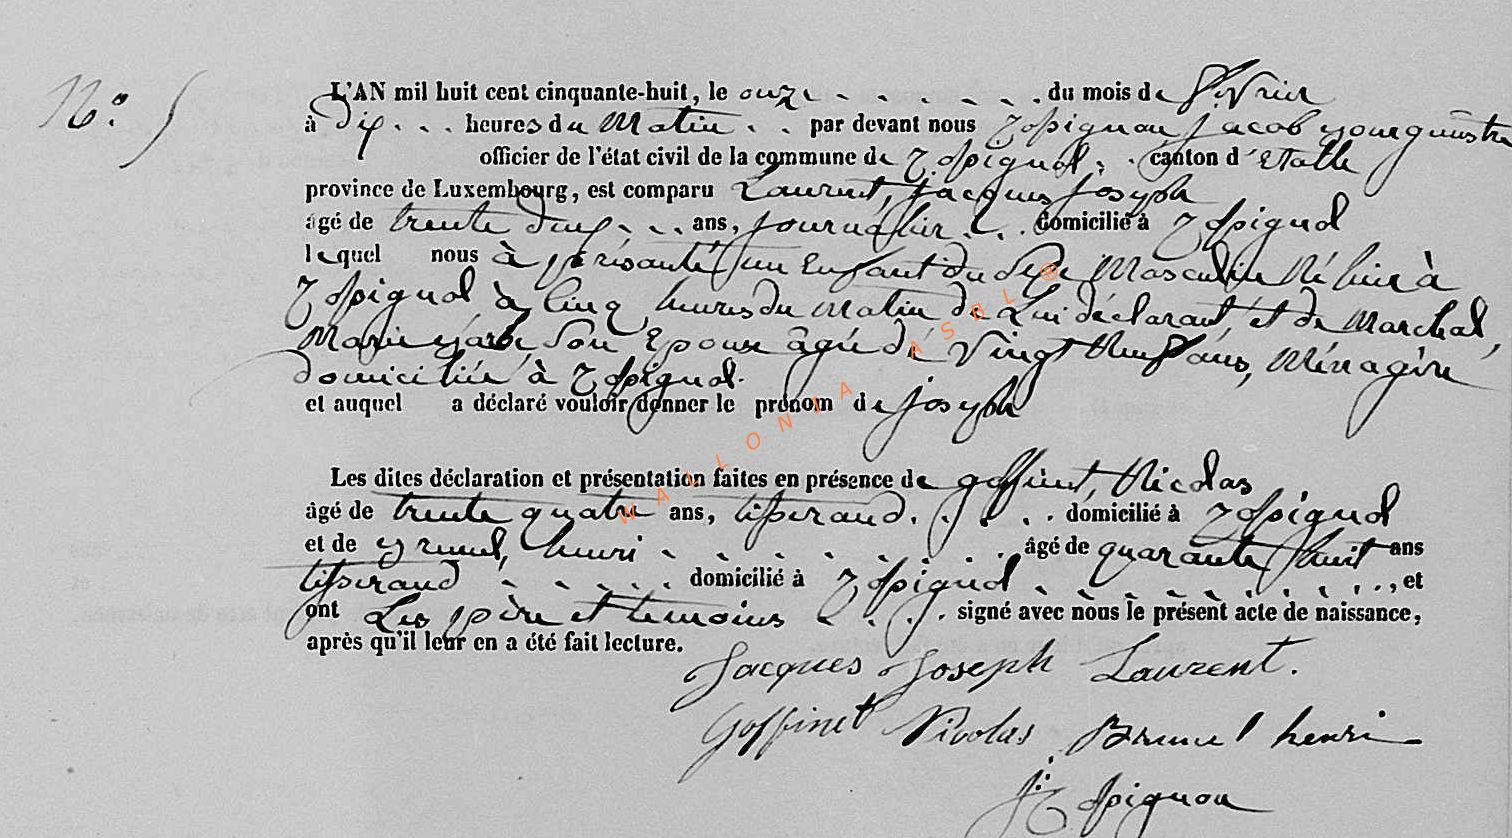 N° 5
L'AN mil huit cent cinquante-huit, le onze . . . . . . . du mois de février
à dix . . . heures du Matin . . par devant nous Jacob
officier de l'état civil de la commune de canton d'Etalle
province de Luxembourg, est comparu Laurent, Jacques Joseph
âgé de trente deux . . . ans, journalier . . . domicilié à
lequel nous à présanté un Enfant du Sexe Masculin Né hier à
à Cinq heures du matin de Lui déclarant, et de Marchal,
Marie son Epouse âgée de Vingt Neuf ans, Ménagère
domiciliée à
et auquel a déclaré vouloir donner le prénom de joseph
Les dites déclaration et présentation faites en présence de goffinet, Nicolas
âgé de trente quatre ans, tisserand . . . . . domicilié à
et de henri . . . . . . . . âgé de quarante huit ans
tisserand . . . . . . domicilié à . . . . . . . . . , et
ont Les père et temoins . . . . signé avec nous le présent acte de naissance,
après qu'il leur en a été fait lecture.
Jacques Joseph Laurent.
Goffinet Nicolas Brunel henri
WALLONIA ASBL ®